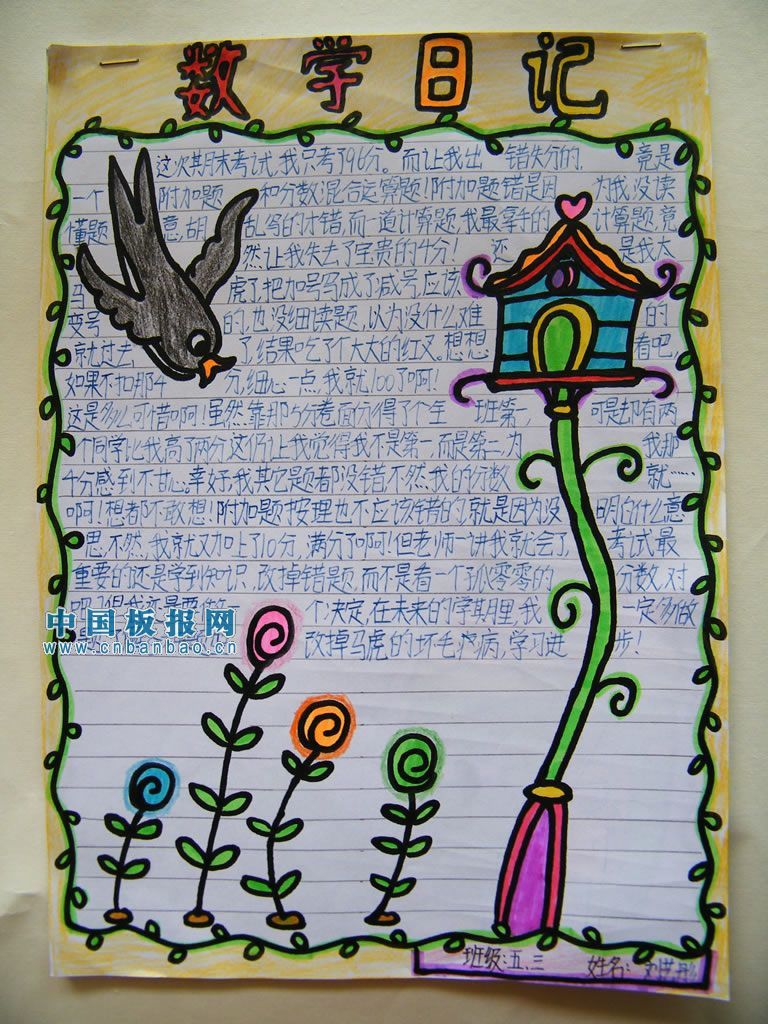 数学日记
这次期末考试,我只考了96分。而让我出 错失分的, 竟是
一个 附加题 和分数混合运算题!附加题错是因 为我没读
懂题 意,胡 乱写的才错,而一道计算题,我最拿手的 计算题,竟
然让我失去了宝贵的4分! 还 是我太
马 虎了,把加号写成了减号,应该
变号 的,也没细读题,以为没什么难 的
就过去 了,结果吃了个大大的红叉。想想 看吧,
如果不扣那4 分,细心一点,我就100了啊!
这是多么可惜啊!虽然靠那5分卷面分得了个全 班第一, 可是却有两
个同学比我高了两分,这仍让我觉得我不是第一,而是第三,为 我那
4分感到不甘心。幸好我其它题都没错,不然,我的分数 就……
啊!想都不敢想!附加题按理也不应该错的,就是因为没 明白什么意
思,不然,我就又加上了10分,满分了啊!但老师一讲我就会了, 考试最
重要的还是学到知识,改掉错题,而不是看一个孤零零的 分数,对
吧 个决定,在未来的学期里,我 一定多做
改掉马虎的坏毛病,学习进 步!
中国板报网
www.cnbanbao.cn
班级:五、三 姓名:刘